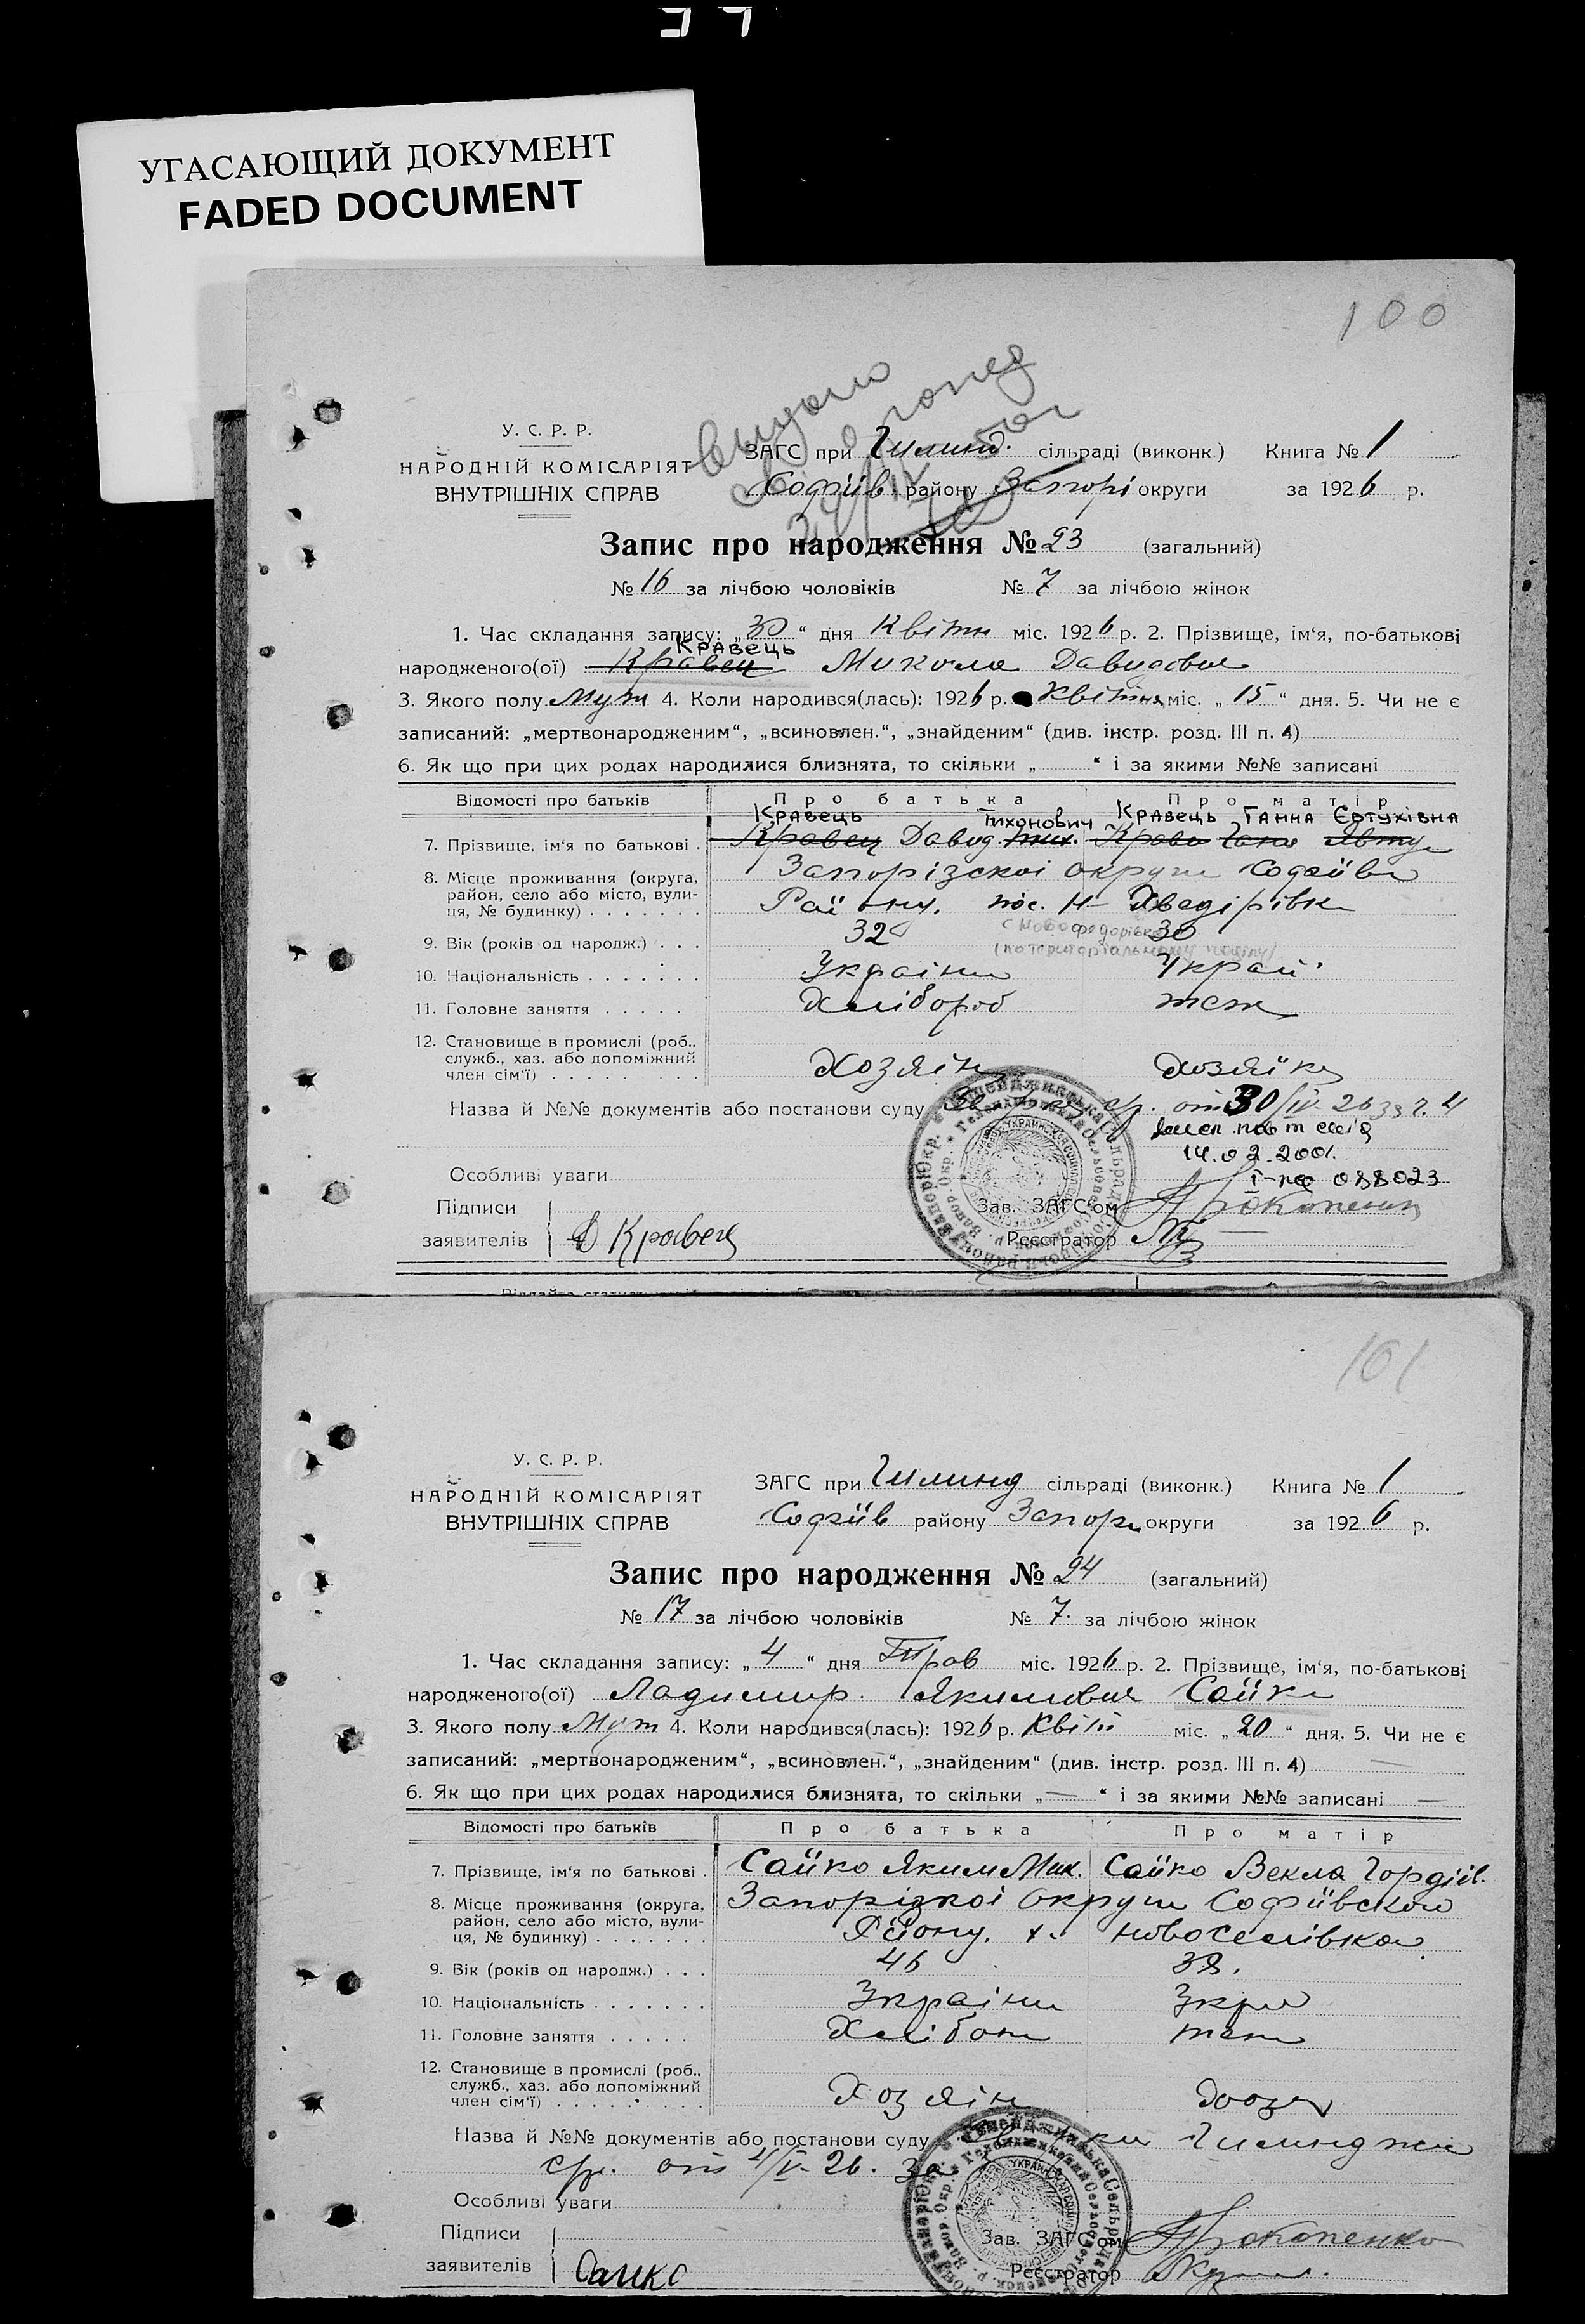 УГАСАЮЩИЙ ДОКУМЕНТ
FADED DOCUMENT
100
У. С. Р. Р.
НАРОДНІЙ КОМІСАРІЯТ
ВНУТРІШНІХ СПРАВ
ЗАГС при сільраді (виконк.) Книга № 1
Софіїв району Запорі округи за 1926 р.
Запис про народження № 23 (загальний)
№ 16 за лічбою чоловіків № 7 за лічбою жінок
1. Час складання запису: „30“ дня Квітн міс. 1926 р. 2. Прізвище, ім‘я, по-батькові
Кравець
народженого(ої) Кравец Микола Давидович
3. Якого полу Муж 4. Коли народився(лась): 1926 р. Квітня міс. „15“ дня. 5. Чи не є
записаний: „мертвонародженим“, „всиновлен.“, „знайденим“ (див. інстр. розд. III п. 4)
6. Як що при цих родах народилися близнята, то скільки „ “ і за якими №№ записані
Відомості про батьків Про батька Про матір
Кравець Тихонович Кравець Ганна Євтухівна
7. Прізвище, ім‘я по батькові . Кравец Давид Тих.
8. Місце проживання (округа, Запорізскоі округи Софіїв
район, село або місто, вули- Району. пос. Н-
ця, № будинку) . . . . . . .
9. Вік (років од народж.) . . . 32 30
10. Національність . . . . . . . Україн Украї
11. Головне заняття . . . . . Хлібороб теж
12. Становище в промислі (роб.,
служб., хаз. або допоміжний
член сім‘ї) . . . . . . . . . Хозяін Хозяйка
Назва й №№ документів або постанови суду ср. от 30/IV-26 за ч. 4
14.02.2001.
Особливі уваги І-    088023
Підписи Зав. ЗАГС‘ом Прокопенко
заявителів Д Кравец Реєстратор
101
У. С. Р. Р.
НАРОДНІЙ КОМІСАРІЯТ
ВНУТРІШНІХ СПРАВ
ЗАГС при сільраді (виконк.) Книга № 1
Софіїв району Запор округи за 1926 р.
Запис про народження № 24 (загальний)
№ 17 за лічбою чоловіків № 7. за лічбою жінок
1. Час складання запису: „4“ дня Трав міс. 1926 р. 2. Прізвище, ім‘я, по-батькові
народженого(ої) Ладимир Якимович Сайко
3. Якого полу Муж 4. Коли народився(лась): 1926 р. Квіт міс. „20“ дня. 5. Чи не є
записаний: „мертвонародженим“, „всиновлен.“, „знайденим“ (див. інстр. розд. III п. 4) —
6. Як що при цих родах народилися близнята, то скільки „—“ і за якими №№ записані —
Відомості про батьків Про батька Про матір
7. Прізвище, ім‘я по батькові . Сайко Яким Мих. Сайко Векла Гордіїв.
8. Місце проживання (округа, Запорізкоі округи Софіївского
район, село або місто, вули- Району. х. Новоселівка
ця, № будинку) . . . . . . .
9. Вік (років од народж.) . . . 46 38.
10. Національність . . . . . . . Україн Укра
11. Головне заняття . . . . . теж
12. Становище в промислі (роб.,
служб., хаз. або допоміжний
член сім‘ї) . . . . . . . . . Хозяін
Назва й №№ документів або постанови суду
ср. от 4/V-26. за
Особливі уваги
Підписи Зав. ЗАГС‘ом Прокопенко
заявителів Сайко Реєстратор